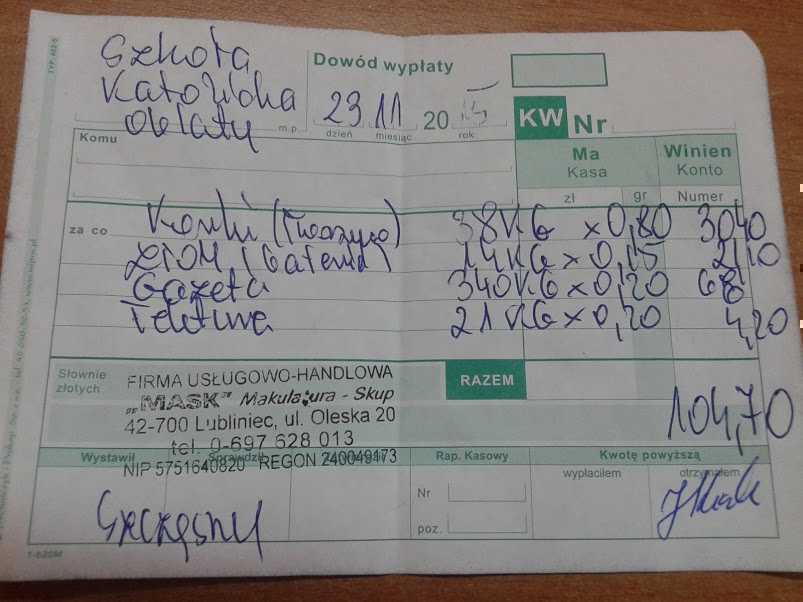 TYP: 412-5
Szkoła
Katolicka
Oblaty
m.p.
Dowód wypłaty
23 11 20 15
dzień miesiąc rok
KW Nr
Komu
Ma Winien
Kasa Konto
zł gr Numer
za co Korki (Tworzywo) 38KG x 0,80 3040
ZŁOM (baterie) 14KG x 0,15 2,10
Gazeta 340KG x 0,20 68
Tektura 21KG x 0,20 4,20
Słownie
złotych
RAZEM 104,70
FIRMA USŁUGOWO-HANDLOWA
„MASK" Makulatura - Skup
42-700 Lubliniec, ul. Oleska 20
tel. 0-697 628 013
NIP 5751640820 REGON 240049173
Wystawił Sprawdził Rap. Kasowy Kwotę powyższą
wypłaciłem otrzymałem
Nr
poz.
Szczęsny